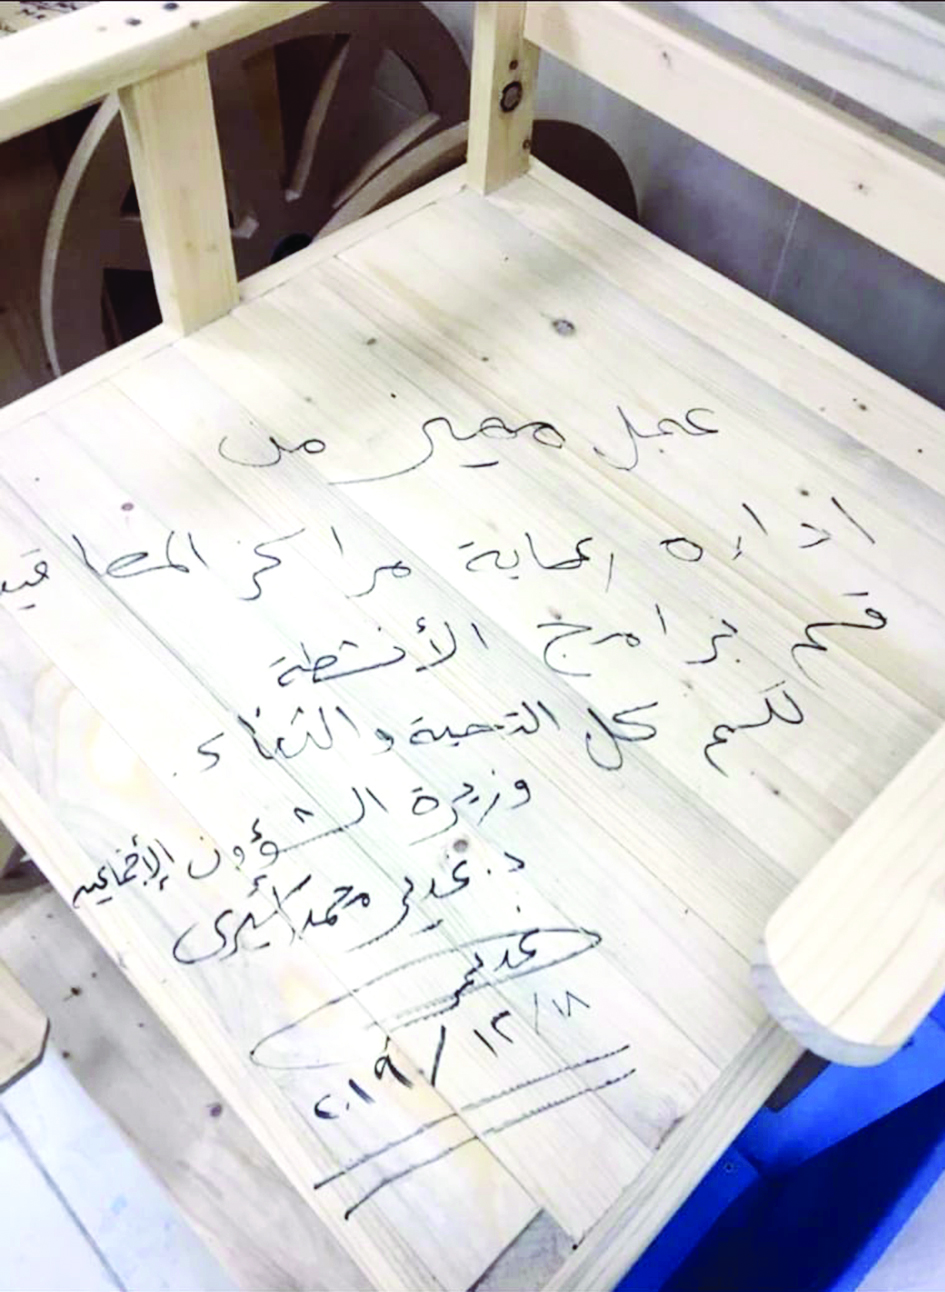 عمل مميز من
اداره رعاية مراكز المعاقين
قسم برامج الأنشطة
لكم كل التحية والثناء.
وزيرة الشؤون الإجتماعيه
د. غدير محمد أسيري
غدير
١٨/١٢/٢٠١٩